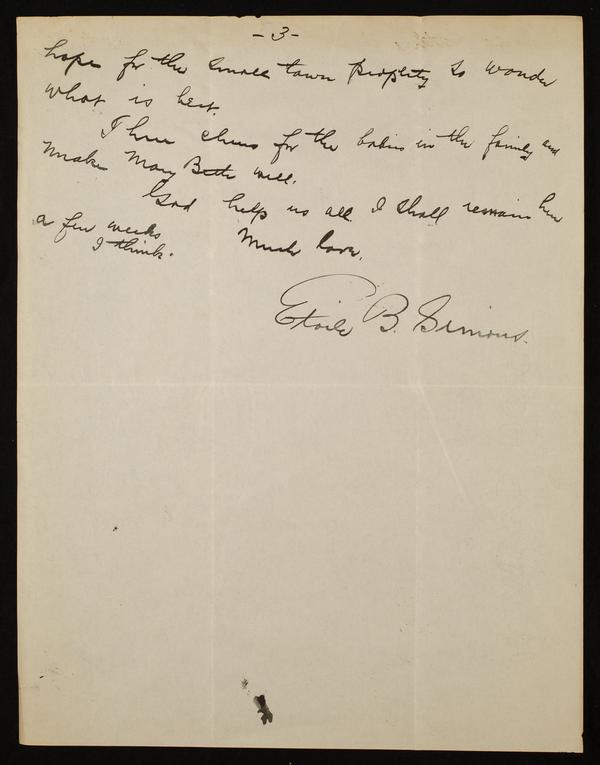 - 3 -
hopes for the small town property so wonder
what is best.
Three cheers for the babies in the family and
make Mary Beth well.
God help us all. I shall remain here
a few weeks
I think.
Much love,
Etoile B. Simons.